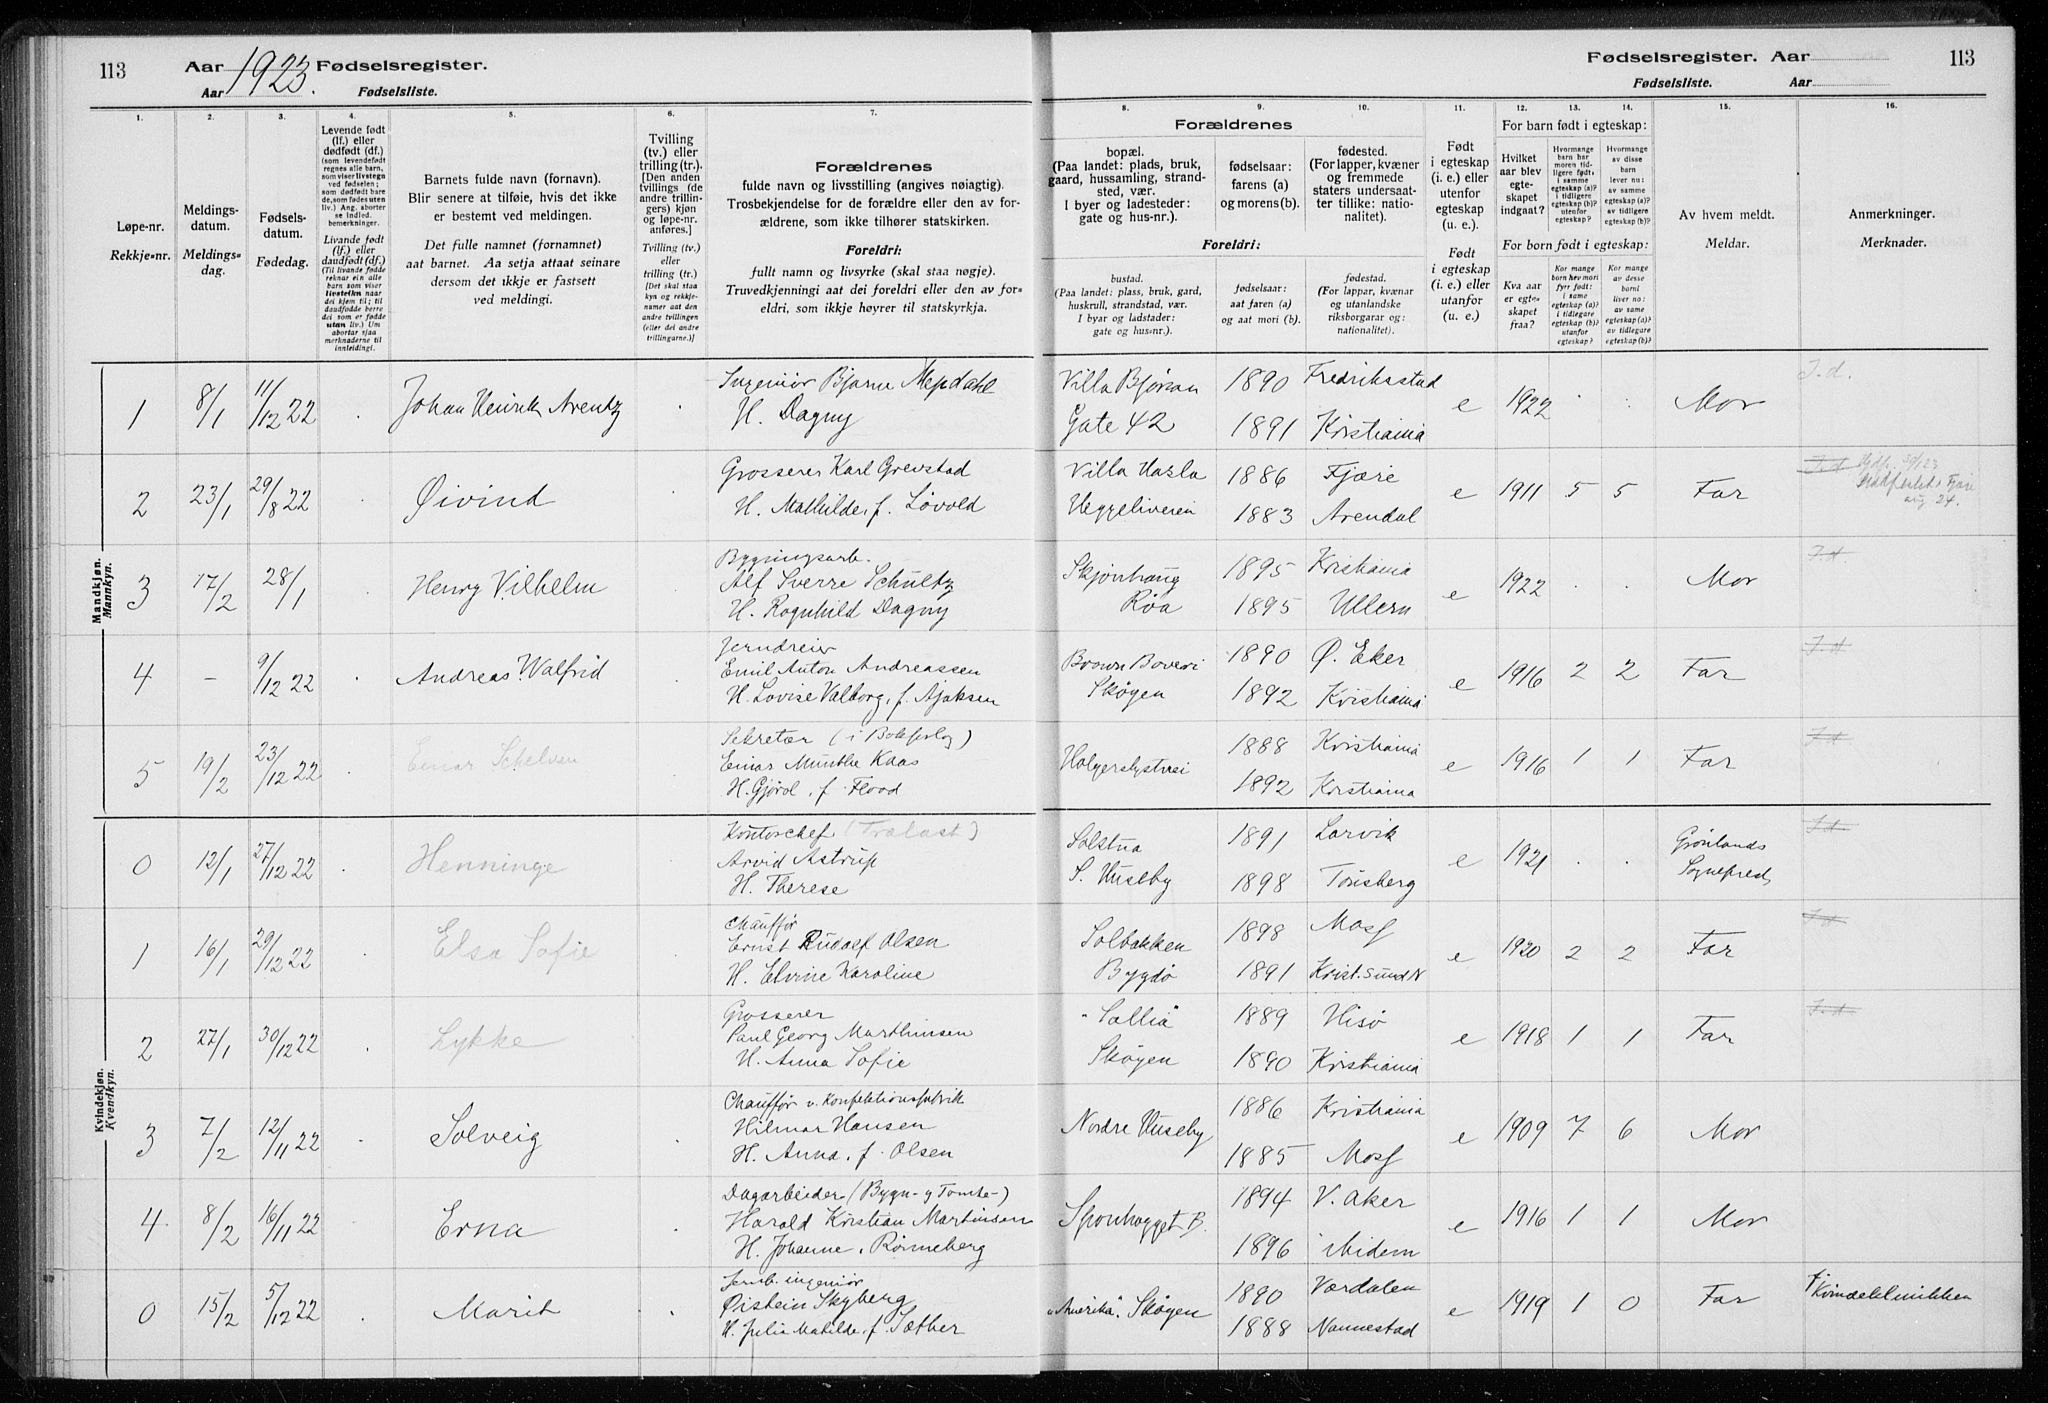 113
Aar 1923. Fødselsregister.
Aar Fødselsliste.
Fødselsregister. Aar
113
Fødselsliste. Aar
1.
2.
3.
4.
5.
6.
7.
8.
9.
10.
11.
12.
13.
14.
15.
16.
Løpe-nr.
Rekkje=nr.
Meldings-
datum.
Meldings=
dag.
Fødsels-
datum.
Fødedag.
Levende født
(lf.) eller
dødfødt (df.)
(som levendefødt
regnes alle barn,
som viser livstegn
ved fødselen;
som dødfødt bare
de, som fødes uten
liv.) Ang. aborter
se indled.
bemerkninger.
Livande født
(lf.) eller
daudfødt (df.)
(Til livande fødde
reknar ein alle
barn som viser
livsteikn naar
dei kjem til; til
daudfødde berre
dei som er fødde
utan liv.) Um
abortar sjaa
merknaderne til
innleidingi.
Barnets fulde navn (fornavn).
Blir senere at tilføie, hvis det ikke
er bestemt ved meldingen.
Det fulle namnet (fornamnet)
aat barnet. Aa setja attaat seinare
dersom det ikkje er fastsett
ved meldingi.
Tvilling
(tv.) eller
trilling (tr.)
[Den anden
tvillings (de
andre trillin-
gers) kjøn
og løpe-nr.
anføres.]
Tvilling (tv.)
eller
trilling (tr.)
[Det skal staa
kyn og rekkje-
numer aat den
andre tvillingen
(eller dei andre
trillingarne.)]
Forældrenes
fulde navn og livsstilling (angives nøiagtig).
Trosbekjendelse for de forældre eller den av for-
ældrene, som ikke tilhører statskirken.
Foreldri:
fullt namn og livsyrke (skal staa nøgje).
Truvedkjenningi aat dei foreldri eller den av for-
eldri, som ikkje høyrer til statskyrkja.
Forældrenes
bopæl.
(Paa landet: plads, bruk,
gaard, hussamling, strand-
sted, vær.
I byer og ladesteder:
gate og hus-nr.).
fødselsaar:
farens (a)
og morens (b).
fødested.
(For lapper, kvæner
og fremmede
staters undersaat-
ter tillike: natio-
nalitet).
Foreldri:
bustad.
(Paa landet: plass, bruk, gard,
huskrull, strandstad, vær.
I byar og ladstader:
gate og hus=nr.).
fødselsaar:
aat faren (a)
og aat mori (b).
fødestad.
(For lappar, kvænar
og utanlandske
riksborgarar og:
nationalitet).
Født
i egteskap
(i. e.) eller
utenfor
egteskap
(u. e.).
Født
i egteskap
(i. e.) eller
utanfor
egteskap
(u. e.).
For barn født i egteskap:
Hvilket
aar blev
egte-
skapet
indgaat?
Hvormange
barn har
moren tid-
ligere født:
i samme
egteskap (a)?
i tidligere
egteskap (b)?
utenfor
egteskap?
Hvormange
av disse
barn
lever nu:
av samme
egteskap (a)?
av tidligere
egteskap (b)?
For born født i egteskap:
Kva aar
er egte=
skapet
fraa?
Kor mange
born hev mori
fyrr født:
i same
egteskap (a)?
i tidlegare
egteskap (b)?
utanfor
egteskap?
Kor mange
av desse
borni
liver no:
av same
egteskap (a)?
av tidlegare
egteskap (b)?
Av hvem meldt.
Meldar.
Anmerkninger.
Merknader.
Mandkjøn.
Mannkyn.
1 8/1 11/12 22 Johan Henrik Arentz Ingeniør Bjarne Mepdahl H. Dagny Villa Bjørnan Gate 42 1890 1891 Fredriksstad Kristiania e 1922 Mor I.d.
2 23/1 29/8 22 Øivind Grosserer Karl Grevstad H. Mathilde, f. Løvold Villa Hasla Heggeliveien 1886 1883 Fjære Arendal e 1911 5 5 Far I.d. Fjære aug 24.
3 17/2 28/1 Henry Vilhelm Bygningsarb. Alf Sverre Schultz H. Ragnhild Dagny Skjønhaug Røa 1895 1895 Kristiania Ullern e 1922 Mor I.d.
4 - 9/12 22 Andreas Valfrid Jerndreier Emil Anton Andreassen H. Lovise Valborg, f. Ajaksen Brown Boveri Skøyen 1890 1892 Ø. Eker Kristiania e 1916 2 2 Far I.d.
5 19/2 23/12 22 Einar Schelven Sekretær (i Bokforlag) Einar Munthe Kaas H. Gjørol, f. Flood Holgerslystvei 1888 1892 Kristiania Kristiania e 1916 1 1 Far I.d.
Kvindekjøn.
Kvendkyn.
0 12/1 27/12 22 Henninge Kontorchef (Trælast) Arvid Astrup H. Therese Solstua S. Huseby 1891 1898 Larvik Tønsberg e 1921 Grønlands Sogneprest I.d.
1 16/1 29/12 22 Elsa Sofie Chauffør Ernst Rudolf Olsen H. Elvine Karoline Solbakken Bygdø 1898 1891 Moss Krist.sund N e 1920 2 2 Far I.d.
2 27/1 30/12 22 Lykke Grosserer Paul Georg Marthinsen H. Anna Sofie "Sollia" Skøyen 1889 1890 Hisø Kristiania e 1918 1 1 Far I.d.
3 7/2 12/11 22 Solveig Chauffør v. Konfektionsfabrik Hilmar Hansen H. Anna, f. Olsen Nordre Huseby 1886 1885 Kristiania Moss e 1909 7 6 Mor
4 8/2 16/11 22 Erna Dagarbeider (Bygn- og Tomte-) Harald Kristian Martinsen H. Johanne, Rønneberg Sponhogget B. 1894 1896 V. Aker ibidem e 1916 1 1 Mor
0 15/2 5/12 22 Marit Jernb. ingeniør Øistein Skyberg H. Julia Matilde, f. Sæther "Amerika", Skøyen 1890 1888 Værdalen Nannestad e 1919 1 0 Far f. Kvindeklinikken